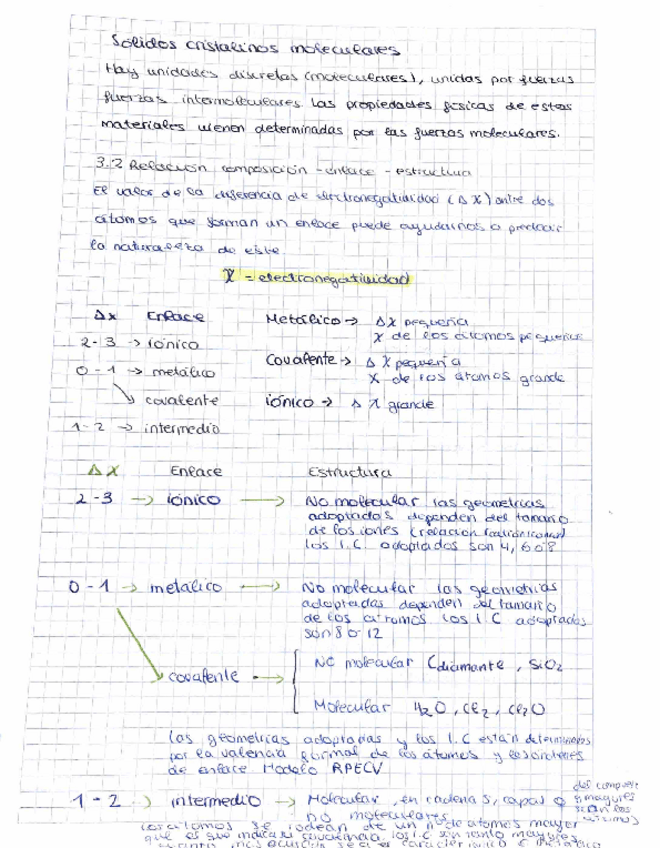 Sólidos cristalinos moleculares
Hay unidades discretas (moleculares), unidas por fuerzas
fuerzas intermoleculares Las propiedades físicas de estos
materiales vienen determinadas por las fuerzas moleculares.
3.2 Relación composición - enlace - estructura
El valor de la diferencia de electronegatividad (ΔX) entre dos
átomos que forman un enlace puede ayudarnos a predecir
la naturaleza de este.
X = electronegatividad
Δx Enlace
2-3 → iónico
0-1 → metálico
↘ covalente
1-2 → intermedio
Metálico → ΔX pequeña
X de los átomos pequeña
Covalente → ΔX pequeña
X de los átomos grande
iónico → ΔX grande
ΔX Enlace Estructura
2-3 → iónico → No molecular las geometrías
adoptados dependen del tamaño
de los iones (relación
los I.C. adoptados son 4, 6 o 8
0-1 → metálico → No molecular las geometrías
adoptadas dependen del tamaño
de los átomos los I.C adoptados
son 8 o 12
↘ covalente → No molecular (diamante, SiO2
Molecular H2O, Cl2, Cl2O
las geometrías adoptadas y los I.C están determinados
por la valencia formal de los átomos y los órdenes
de enlace Modelo RPECV
1-2 → intermedio → Molecular, en cadenas, capas o
no moleculares
los átomos se rodean de un nº de átomos mayor
que el que indica su covalencia, los I.C son tanto mayores